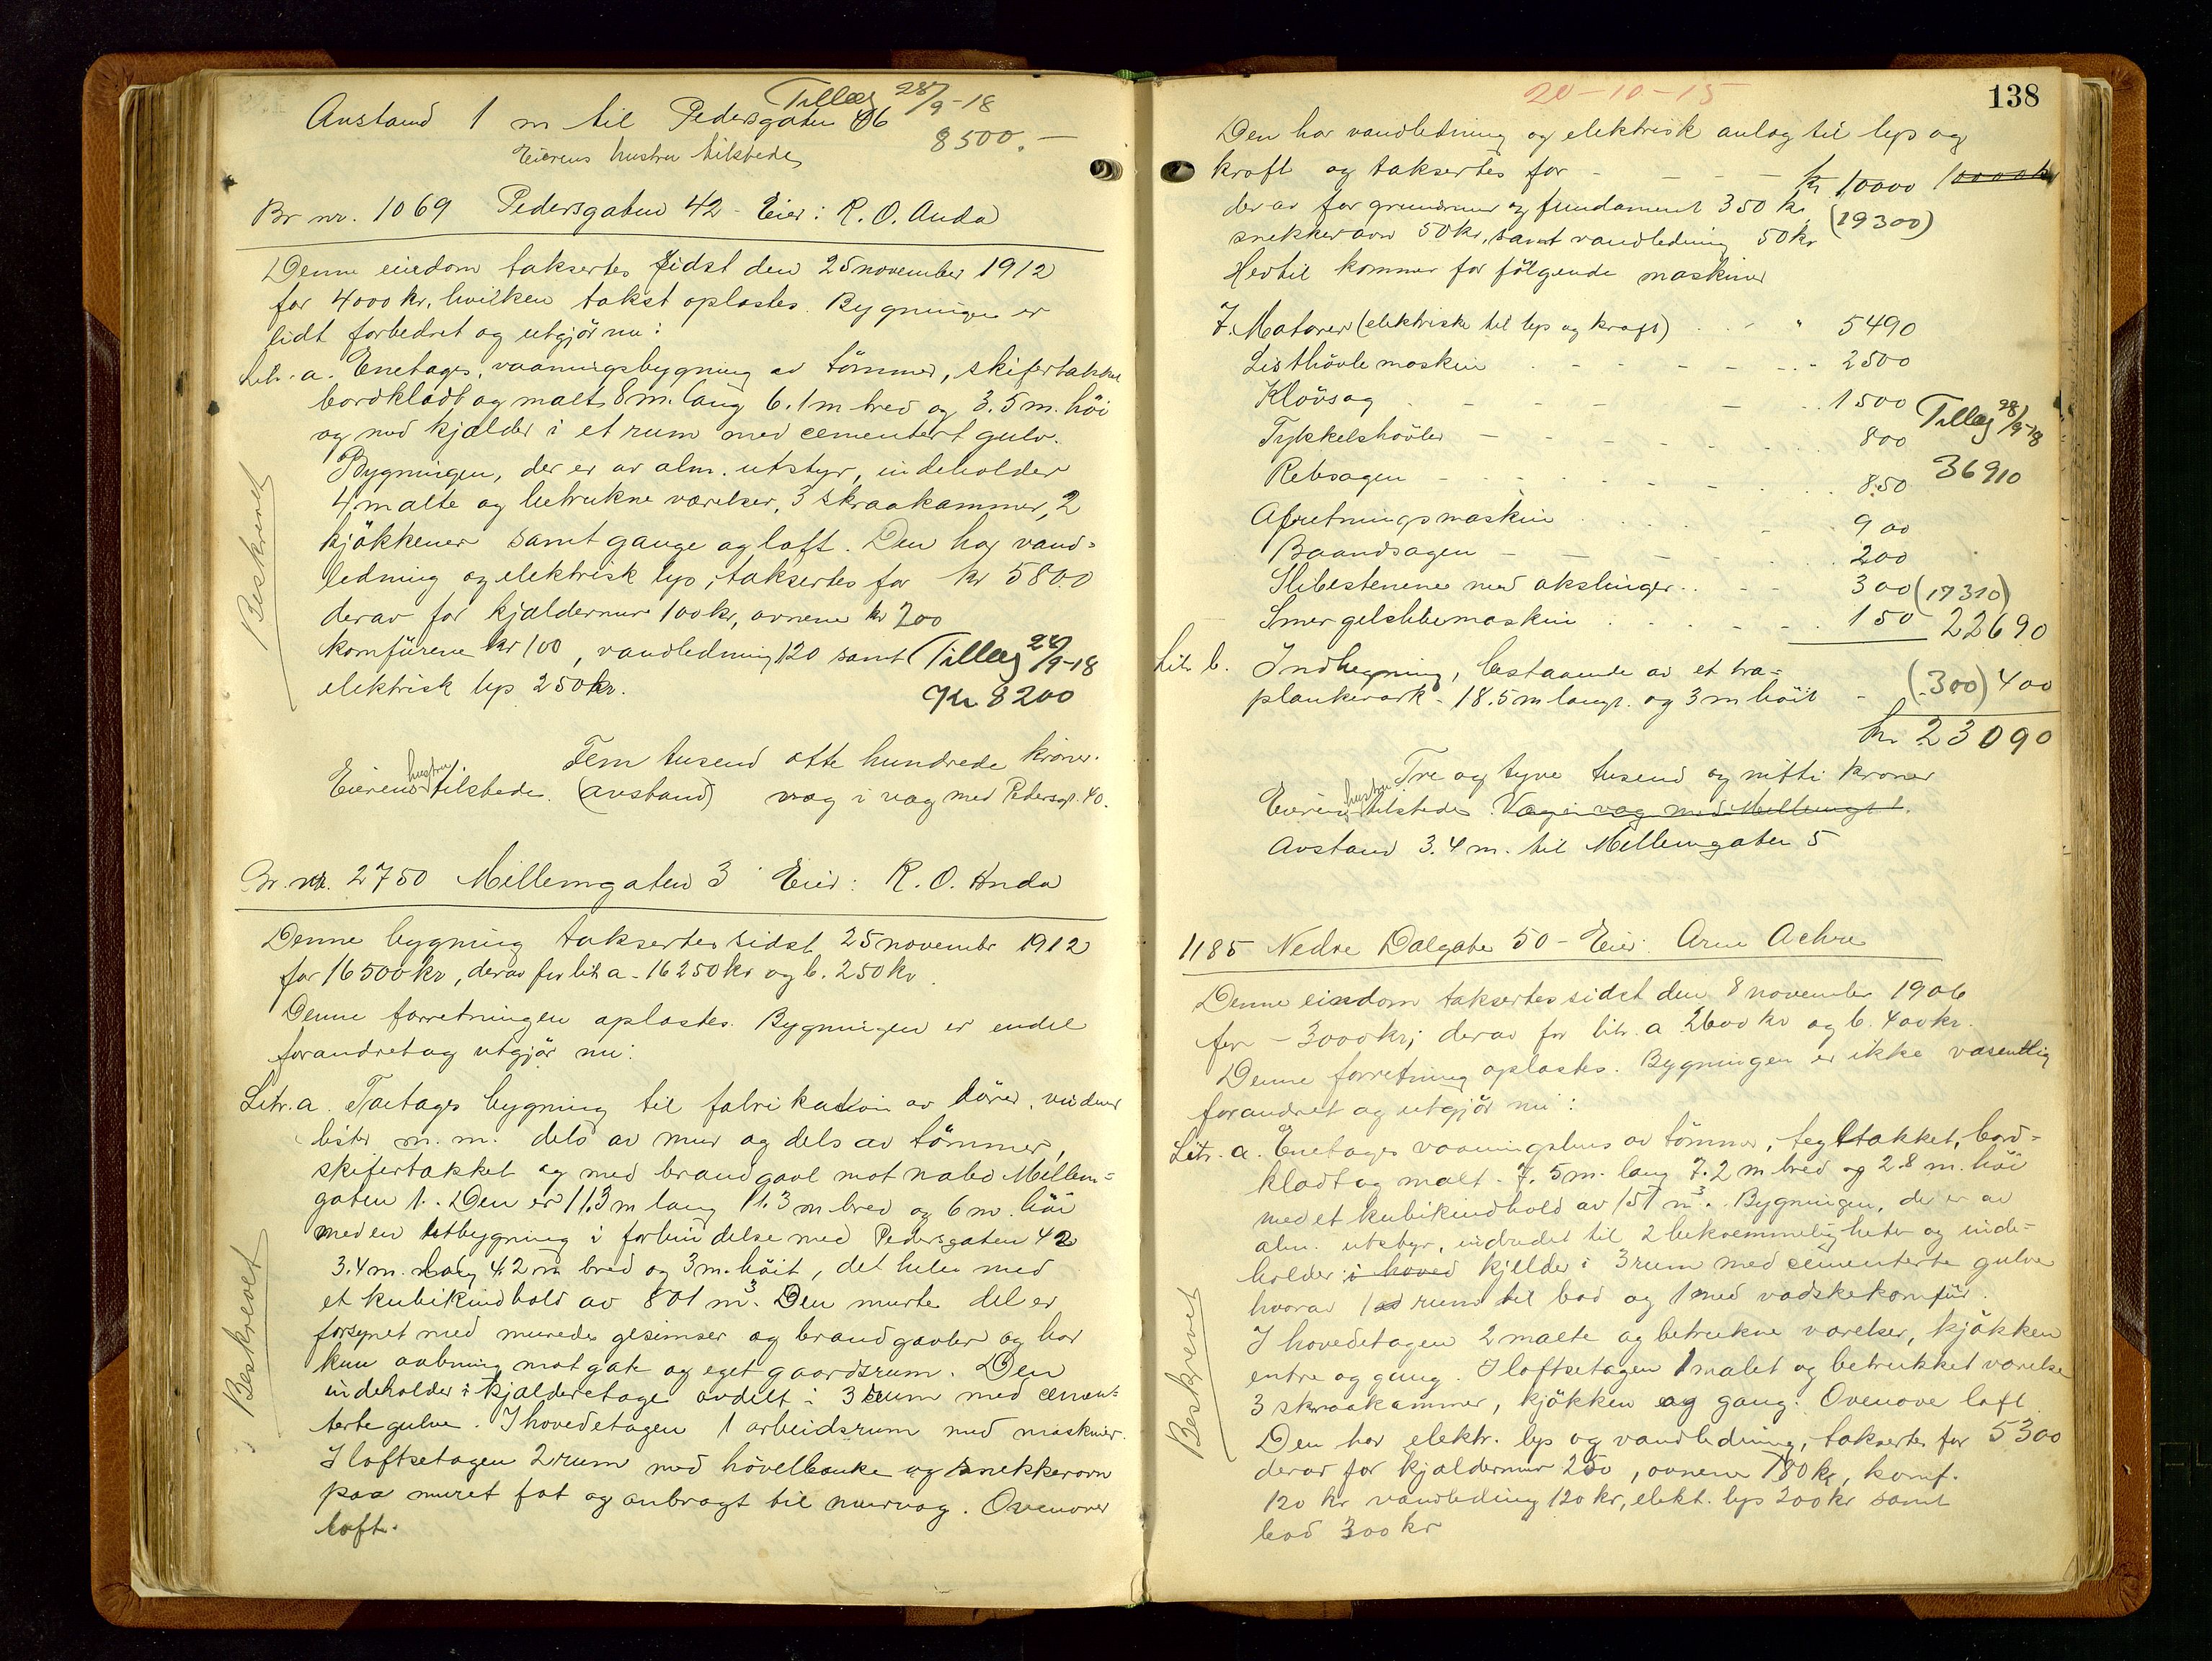 Tillæg 28/9-18
Avstand 1 m til Pedersgaten 86
8500.-
Eierens hustru tilstede
Br nr. 1069 Pedersgaten 42 - Eier: R. O. Anda
Denne eiendom taksertes sidst den 25 november 1912
for 4000 kr. hvilken takst oplastes. Bygningen er
lidt forbedret og utgjör nu:
Litr. a. Enetages vaaningsbygning av tömmer, skifertakket
bordklædt og malt 8 m. lang 6.1 m bred og 3.5 m. höi
og med kjælder i et rum med cementert gulv.
Bygningen, der er av alm. utstyr, indeholder
4 malte og betrukne værelser, 3 skraakammer, 2
kjökkener samt gange og loft. Den har vand=
ledning og elektrisk lys, taksertes for kr 5800
derav for kjældermur 100 kr, ovnene kr 200
komfürene kr 100, vandledning 120 samt
elektrisk lys 250 kr.
Tillæg 28/9-18
Kr 8200
Beskrevet
Fem tusend otte hundrede kroner.
Eierens hustru tilstede. (avstand) væg i væg med Pedersgt. 40.
Br. nr. 2750 Mellemgaten 3 Eier: R. O. Anda
Denne bygning taksertes sidst 25 novembr 1912
for 16500 kr, derav for lit a - 16250 kr og b. 250 kr.
Denne forretningen oplastes. Bygningen er endel
forandret og utgjör nu:
Litr. a. Toetages bygning til fabrikation av dörer, vinduer
lister m. m. dels av mur og dels av tömmer,
skifertakket og med brandgavl mot nabo Mellem=
gaten 1. Den er 11.3 m lang 11.3 m bred og 6 m. höi
med en utbygning i forbindelse med Pedersgaten 42
3.4 m. lang 4.2 m bred og 3 m. höit, det hele med
et kubikindhold av 801 m³. Den murte del er
forsynet med murede gesimser og brandgavler og har
kun aabning mot gate og eget gaardsrum. Den
indeholder i kjælderetage avdelt i 3 rum med cemen=
terte gulve. I hovedetagen 1 arbeidsrum med maskiner.
I loftsetagen 2 rum med hövelbenke og snekkerovn
paa muret fot og anbragt til murvæg. Ovenover
loft.
Beskrevet
20-10-15
138
Den har vandledning og elektrisk anlæg til lys og
kraft og taksertes for - - - - kr 10000 10000 kr
derav for grundmur og fundament 350 kr, (19300)
snekkerovn 50 kr, samt vandledning 50 kr
Hertil kommer for fölgende maskiner
7. Motorer (elektriske til lys og kraft) . . " 5490
Listhövlemaskin - - - - - 2500
Klövsag - - - - - 1500
Tillæg 28/9-18
Tykkelshövler - - - - - 800
36910
Rebsagen - - - - - 850
Afretningsmaskin . . . . 900
Baandsagen - - - - - 200
Slibestenene med akslinger . . - - 300 (17310)
Smergelslibemaskin . . . . . 150 22690
Litr b. Indhegning, bestaaende av et træ=
plankeværk 18.5 m langt og 3 m höit - (300) 400
kr 23090
Tre og tyve tusend og nitti kroner
Eierens hustru tilstede. Væg i væg med Mellemgt 1.
Avstand 3.4 m. til Mellemgaten 5
1185 Nedre Dalgate 50 - Eier: Arne
Denne eiendom taksertes sidst den 8 november 1906
for - 3000 kr; derav for litr. a 2600 kr og b. 400 kr.
Denne forretning oplastes. Bygningen er ikke væsentlig
forandret og utgjör nu:
Litr. a. Enetages vaaningshus av tömmer, tegltakket, bord=
klædt og malt. 7.5 m. lang 7.2 m bred og 2.8 m. höi
med et kubikindhold av 151 m³. Bygningen, der er av
alm. utstyr, indredet til 2 bekvemmeligheter og inde=
holder: i hoved kjelder i 3 rum med cementerte gulve
hvorav 1 rum til bad og 1 med vadskekomfür.
I hovedetagen 2 malte og betrukne værelser, kjökken
entre og gang. I loftsetagen 1 malet og betrukket værelse
3 skraakammer, kjökken og gang. Ovenove loft
Den har elektr. lys og vandledning, taksertes for 5300
derav for kjældermur 250, ovnene 180 kr, komf.
120 kr vandledning 120 kr, elekt. lys 200 kr samt
bad 300 kr
Beskrevet